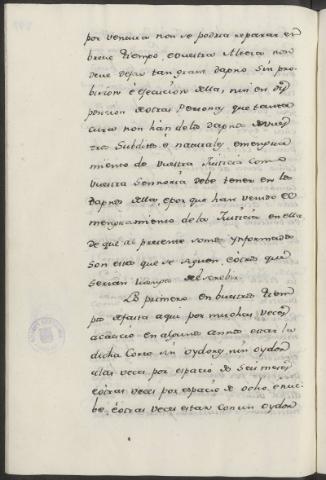 por ventura non se podria reparar en
breve tiempo, e vuestra Alteza non
deve dejar tan grant dapno sin pro-
bision e esecucion della, nin en dis
pension de otras Personas que tanta
cura non han de los dapnos de vues
tros Subditos é naturales, e menguа
miento de vuestra Justicia como
vuestra Sennoria debe tener en los
dapnos della, é por que han venido el
menguamiento de la Justicia en ella
de que al presente somos ynformados
son estos que se siguen, e otros que
serian luengos de escrebir
Lo primero en vuestros tiem
pos de fasta aqui por muchas veces
acaecio en algunos annos estar la
dicha Corte sin oydores, nin oydor
a las veces por espacio de seis meses
é otras veces por espacio de ocho, e nue
be, é otras veces estar con un oydor